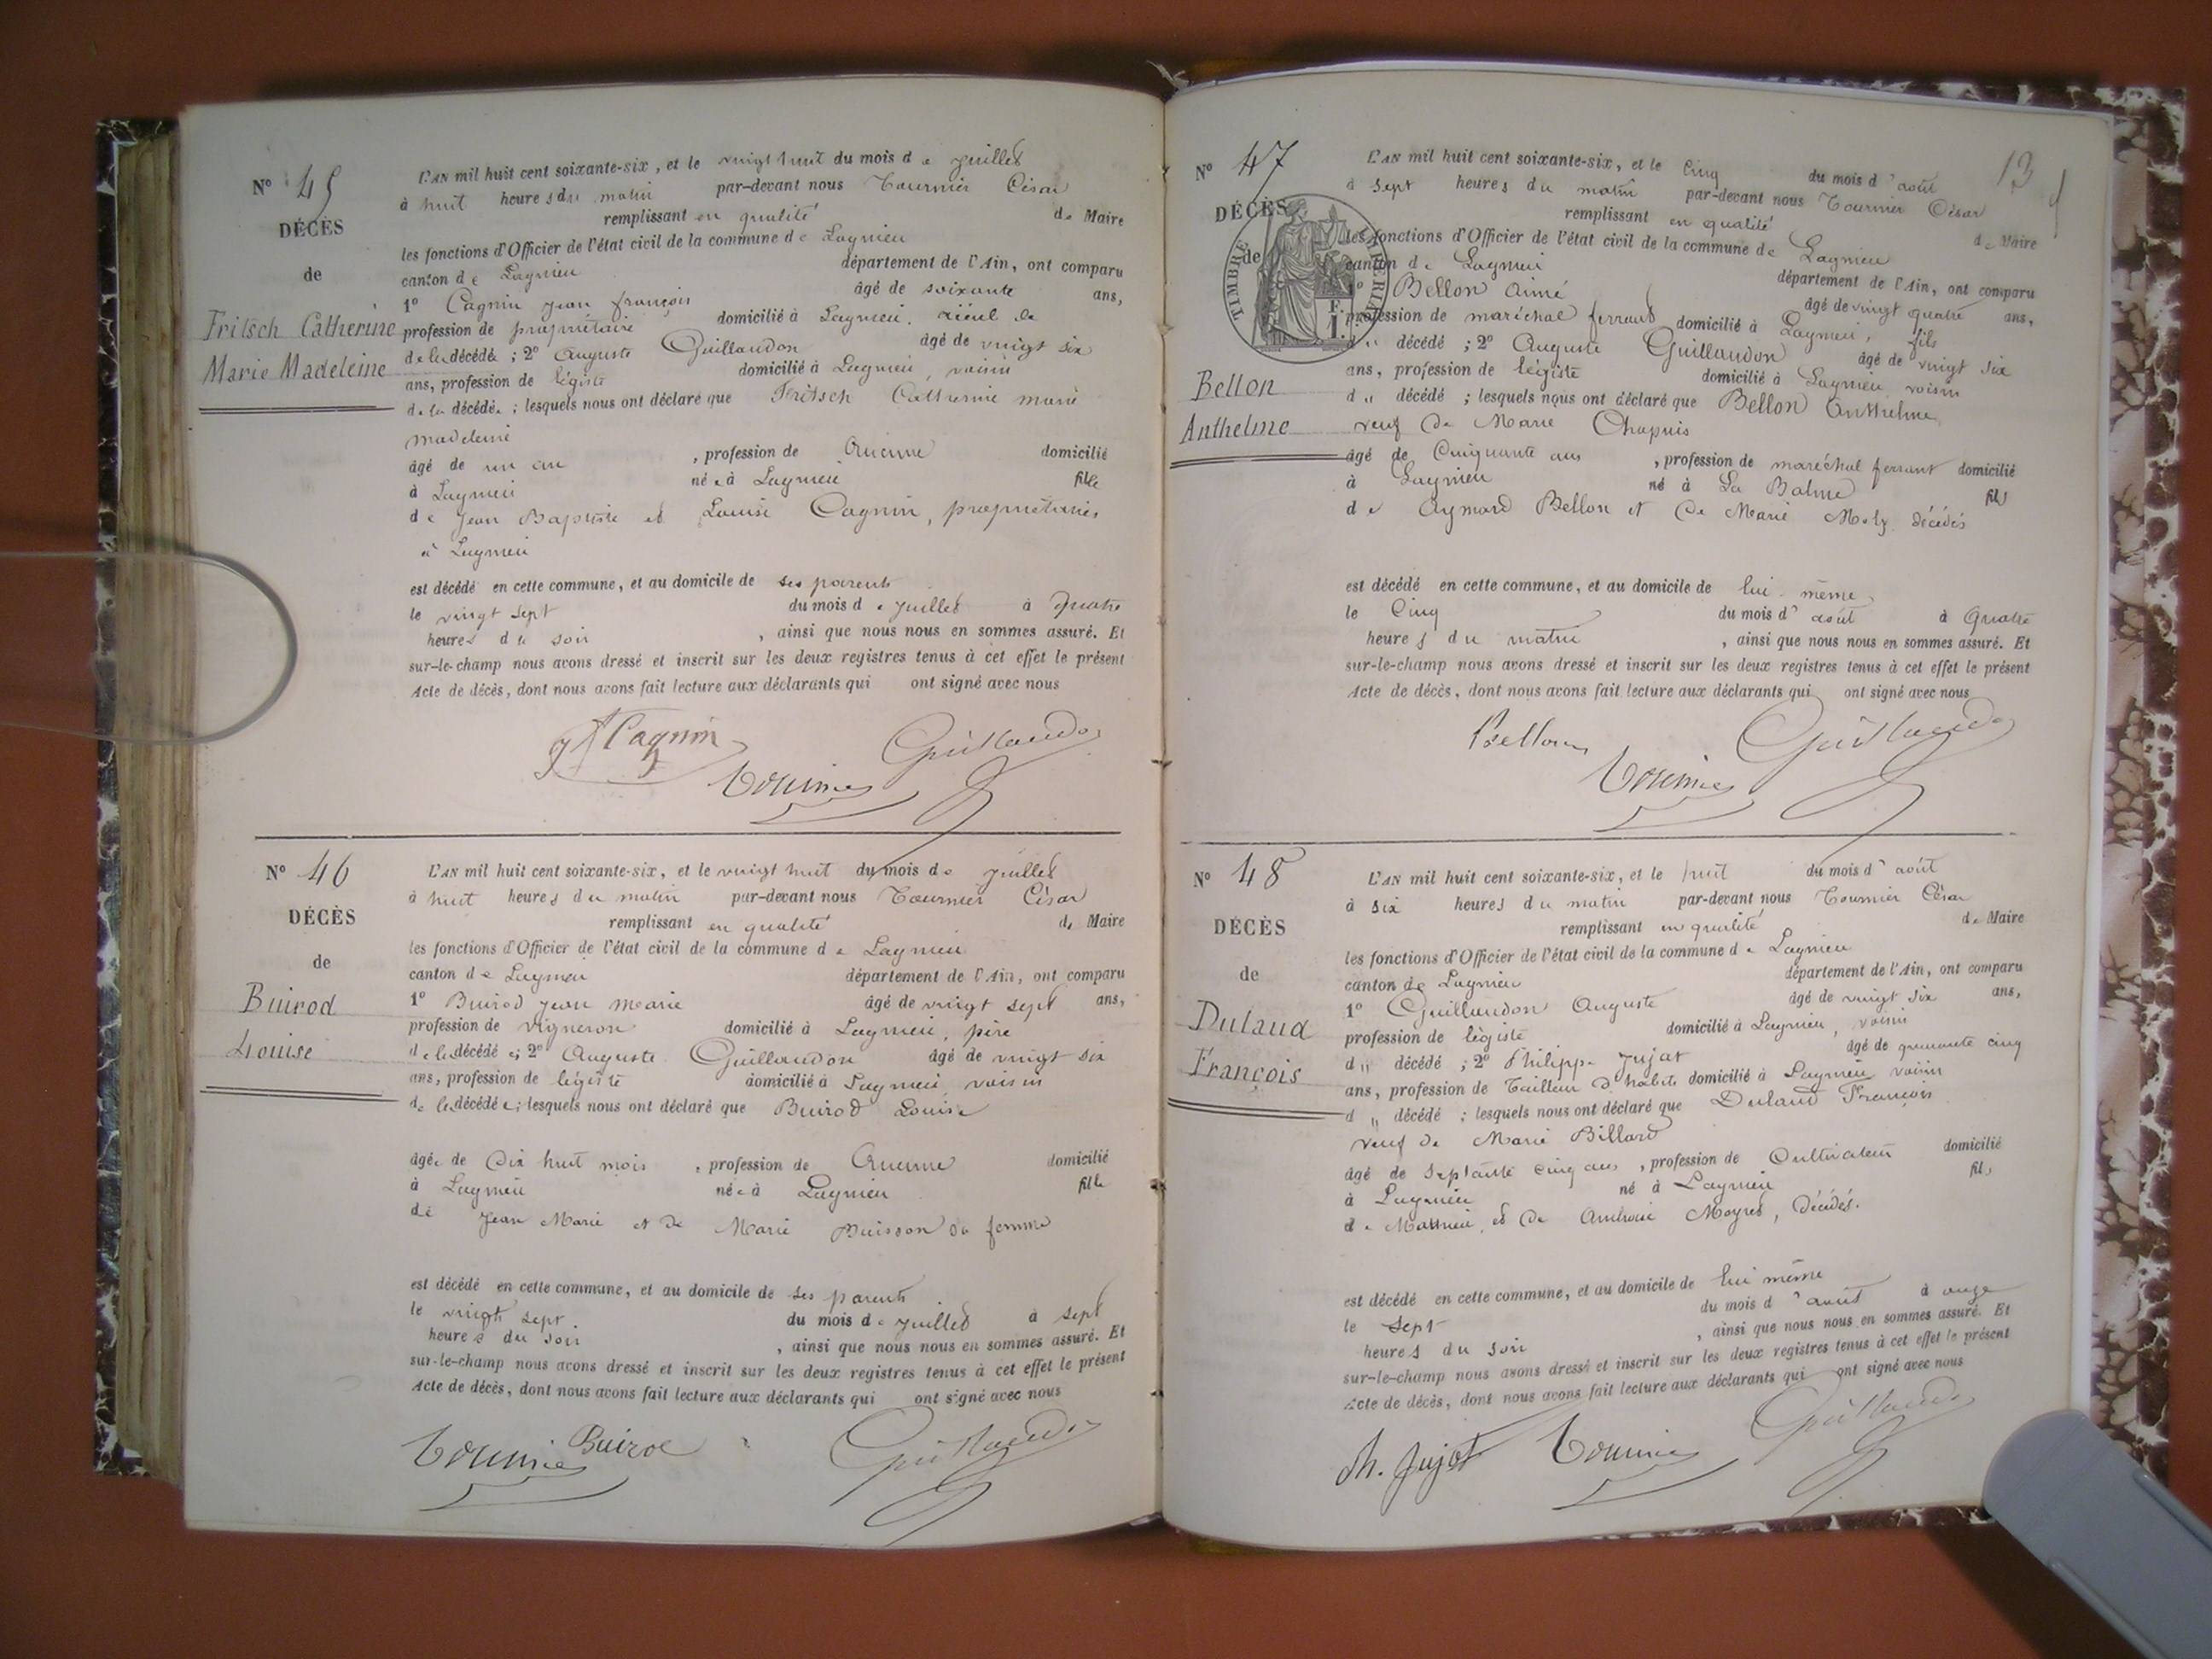 N° 45
DÉCÈS
de
Fritsch Catherine
Marie Madeleine
L'AN mil huit cent soixante-six, et le vingt huit du mois de juillet
à huit heures du matin par-devant nous Tournier César
remplissant en qualité de Maire
les fonctions d'Officier de l'état civil de la commune de Lagnieu
canton de Lagnieu département de l'Ain, ont comparu
1° Cagnin Jean françois âgé de soixante ans,
profession de propriétaire domicilié à Lagnieu, aïeul de
de la décédée ; 2° Auguste Guillaudon âgé de vingt six
ans, profession de légiste domicilié à Lagnieu, voisin
de la décédée ; lesquels nous ont déclaré que Fritsch Catherine marie
madeleine
âgé de un an , profession de Aucune domicilié
à Lagnieu née à Lagnieu fille
de Jean Baptiste et Louise Cagnin, propriétaires
à Lagnieu
est décédé en cette commune, et au domicile de ses parents
le vingt sept du mois de juillet à quatre
heures du soir , ainsi que nous nous en sommes assuré. Et
sur-le-champ nous avons dressé et inscrit sur les deux registres tenus à cet effet le présent
Acte de décès, dont nous avons fait lecture aux déclarants qui ont signé avec nous
Cagnin Tournier Guillaudon
N° 46
DÉCÈS
de
Buirod
Louise
L'AN mil huit cent soixante-six, et le vingt huit du mois de juillet
à huit heures du matin par-devant nous Tournier César
remplissant en qualité de Maire
les fonctions d'Officier de l'état civil de la commune de Lagnieu
canton de Lagnieu département de l'Ain, ont comparu
1° Buirod Jean Marie âgé de vingt sept ans,
profession de vigneron domicilié à Lagnieu, père
de la décédée ; 2° Auguste Guillaudon âgé de vingt six
ans, profession de légiste domicilié à Lagnieu voisin
de la décédée ; lesquels nous ont déclaré que Buirod Louise
âgée de Dix huit mois , profession de Aucune domicilié
à Lagnieu née à Lagnieu fille
de Jean Marie et de Marie Buisson sa femme
est décédé en cette commune, et au domicile de ses parents
le vingt sept du mois de juillet à sept
heures du soir , ainsi que nous nous en sommes assuré. Et
sur-le-champ nous avons dressé et inscrit sur les deux registres tenus à cet effet le présent
Acte de décès, dont nous avons fait lecture aux déclarants qui ont signé avec nous
Tournier Buirod Guillaudon
13
N° 47
DÉCÈS
de
TIMBRE IMPÉRIAL
Bellon
Anthelme
L'AN mil huit cent soixante-six, et le Cinq du mois d'août
à sept heures du matin par-devant nous Tournier César
remplissant en qualité de Maire
les fonctions d'Officier de l'état civil de la commune de Lagnieu
canton de Lagnieu département de l'Ain, ont comparu
1° Bellon Aimé âgé de vingt quatre ans,
profession de maréchal ferrand domicilié à Lagnieu, fils
du décédé ; 2° Auguste Guillaudon âgé de vingt six
ans, profession de légiste domicilié à Lagnieu voisin
du décédé ; lesquels nous ont déclaré que Bellon Anthelme
veuf de Marie Chapuis
âgé de Cinquante ans , profession de maréchal ferrant domicilié
à Lagnieu né à La Balme fils
de Aymard Bellon et de Marie décédés
est décédé en cette commune, et au domicile de lui même
le Cinq du mois d'août à Quatre
heures du matin , ainsi que nous nous en sommes assuré. Et
sur-le-champ nous avons dressé et inscrit sur les deux registres tenus à cet effet le présent
Acte de décès, dont nous avons fait lecture aux déclarants qui ont signé avec nous
Bellon Tournier Guillaudon
N° 48
DÉCÈS
de
Dulaud
François
L'AN mil huit cent soixante-six, et le huit du mois d'août
à six heures du matin par-devant nous Tournier César
remplissant en qualité de Maire
les fonctions d'Officier de l'état civil de la commune de Lagnieu
canton de Lagnieu département de l'Ain, ont comparu
1° Guillaudon Auguste âgé de vingt six ans,
profession de légiste domicilié à Lagnieu, voisin
du décédé ; 2° Philippe Jujat âgé de quarante cinq
ans, profession de Tailleur d'habits domicilié à Lagnieu voisin
du décédé ; lesquels nous ont déclaré que Dulaud François
veuf de Marie Billard
âgé de septante cinq ans , profession de Cultivateur domicilié
à Lagnieu né à Lagnieu fils
de Mathieu et de Ambroise Meyret, décédés.
est décédé en cette commune, et au domicile de lui même
le sept du mois d'août à onze
heures du soir , ainsi que nous nous en sommes assuré. Et
sur-le-champ nous avons dressé et inscrit sur les deux registres tenus à cet effet le présent
Acte de décès, dont nous avons fait lecture aux déclarants qui ont signé avec nous
Ph. Jujat Tournier Guillaudon